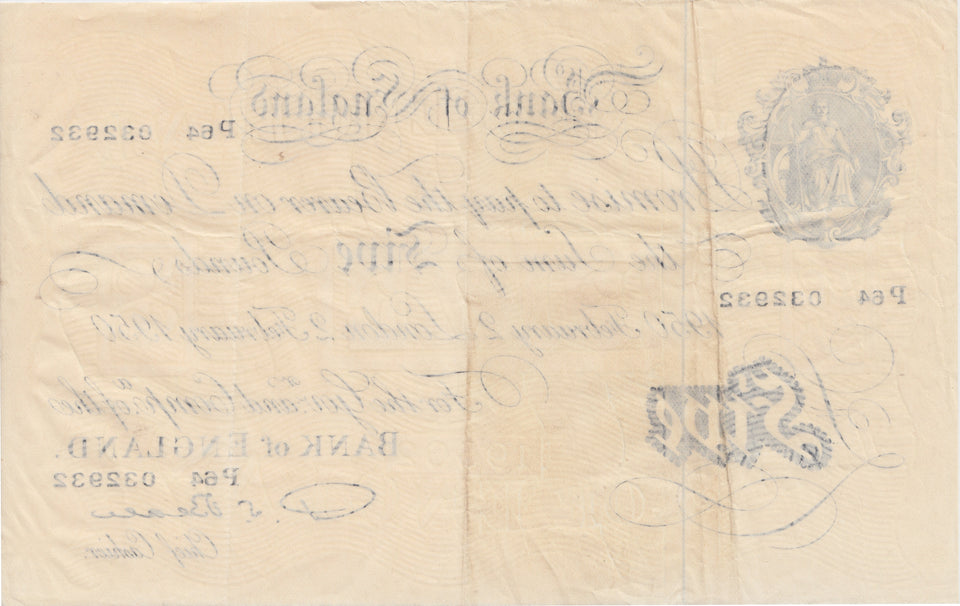 Bank of England
P64 032932
Promise to pay the Bearer on Demand
the Sum of Five Pounds
P64 032932
1950 February 2 London 2 February 1950
For the Gov.r and Comp.a of the
BANK of ENGLAND.
Five
P64 032932
P. S. Beale
Chief Cashier.